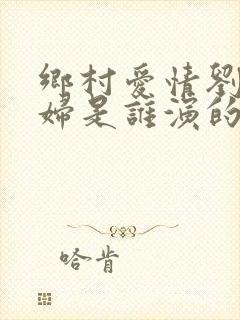 鄉村愛情劉
婦是誰演的
哈肯